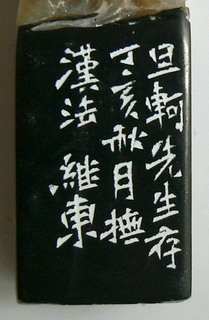 旦軻先生存
丁亥秋月撫
漢法 維東